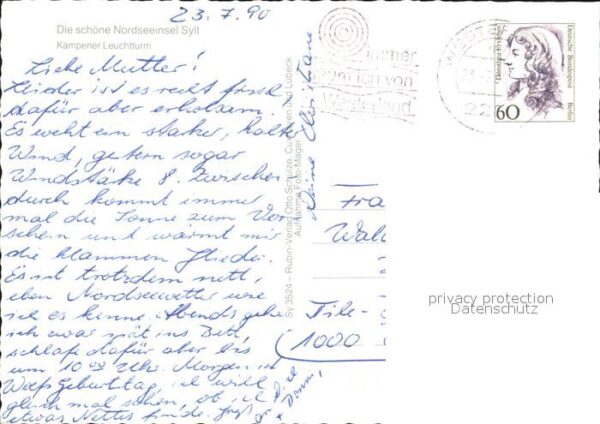 23.7.90
Die schöne Nordseeinsel Sylt
Kampener Leuchtturm
Liebe Mutter!
Leider ist es recht frisch,
dafür aber erholsam.
Es weht ein starker, kalter
Wind, gestern sogar
Windstärke 8. Zwischen
durch kommt immer
mal die Sonne zum Vor
schein und wärmt mir
die klammen Glieder.
Es ist trotzdem nett,
eben Nordseewetter wie
ich es kenne. Abends gehe
ich zwar spät ins Bett,
schlafe dafür aber bis
um 10 00 Uhr. Morgen ist
Geburtstag, ich will
gleich mal sehen, ob ich
etwas Nettes finde.
Deine
Sy 3524 – Rubin-Verlag Otto Schulze, Cuxhaven und Lübeck
Aufnahme Foto-Mager
immer
Westerland
22
Deutsche Bundespost
Berlin
60
Fra
Wal
(1000
privacy protection
Datenschutz